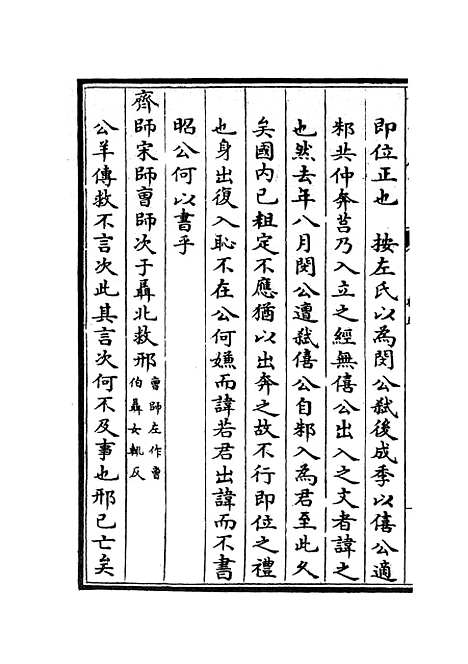 即位正也　按左氏以為閔公弑後成季以僖公適
邾共仲奔莒乃入立之經無僖公出入之文者諱之
也然去年八月閔公遭弑僖公自邾入為君至此久
矣國内已粗定不應猶以出奔之故不行即位之禮
也身出復入恥不在公何嫌而諱若君出諱而不書
昭公何以書乎
齊師宋師曹師次于聶北救邢曹師左作曹伯聶女輒反
公羊傳救不言次此其言次何不及事也邢已亡矣